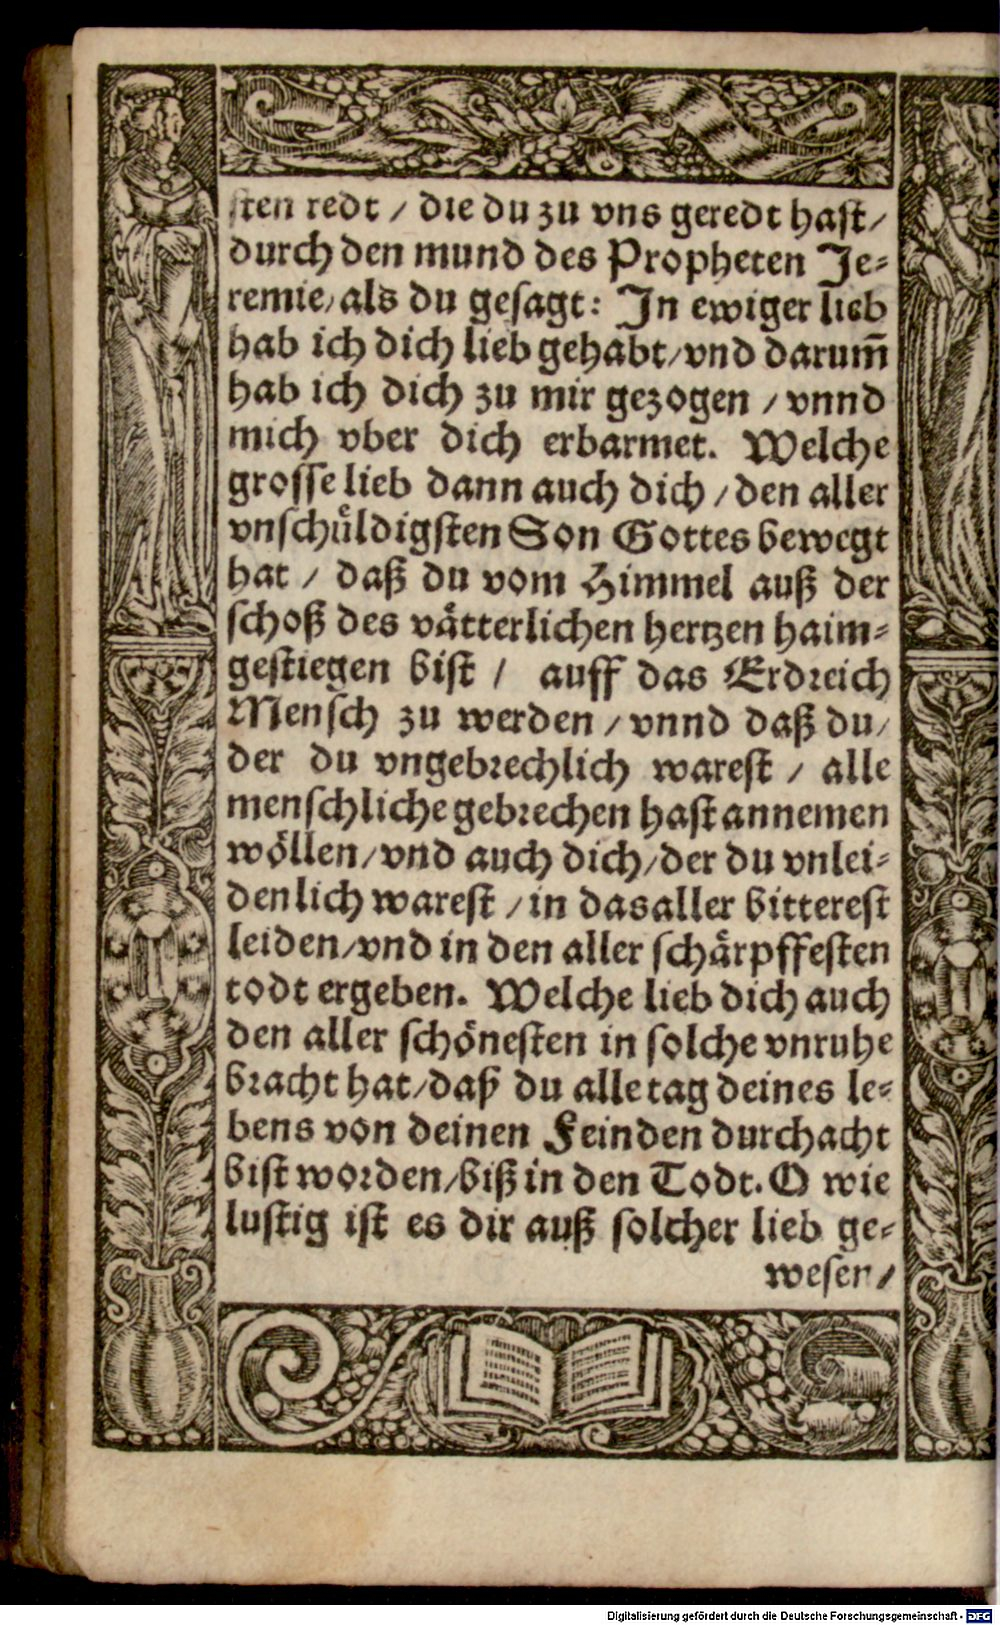 sten redt / die du zu vns geredt hast /
durch den mund des Propheten Je⸗
remie / als du gesagt: In ewiger lieb
hab ich dich lieb gehabt / vnd darum̄
hab ich dich zu mir gezogen / vnnd
mich vber dich erbarmet. Welche
grosse lieb dann auch dich / den aller
vnschůldigsten Son Gottes bewegt
hat / daß du vom Himmel auß der
schoß des vätterlichen hertzen haim⸗
gestiegen bist / auff das Erdreich
Mensch zu werden / vnnd daß du /
der du vngebrechlich warest / alle
menschliche gebrechen hast annemen
wöllen / vnd auch dich / der du vnlei⸗
denlich warest / in das aller bitterest
leiden / vnd in den aller schärpffesten
todt ergeben. Welche lieb dich auch
den aller schönesten in solche vnruhe
bracht hat / daß du alle tag deines le⸗
bens von deinen Feinden durchacht
bist worden / biß in den Todt. O wie
lustig ist es dir auß solcher lieb ge⸗
wesen /
Digitalisierung gefördert durch die Deutsche Forschungsgemeinschaft - DFG